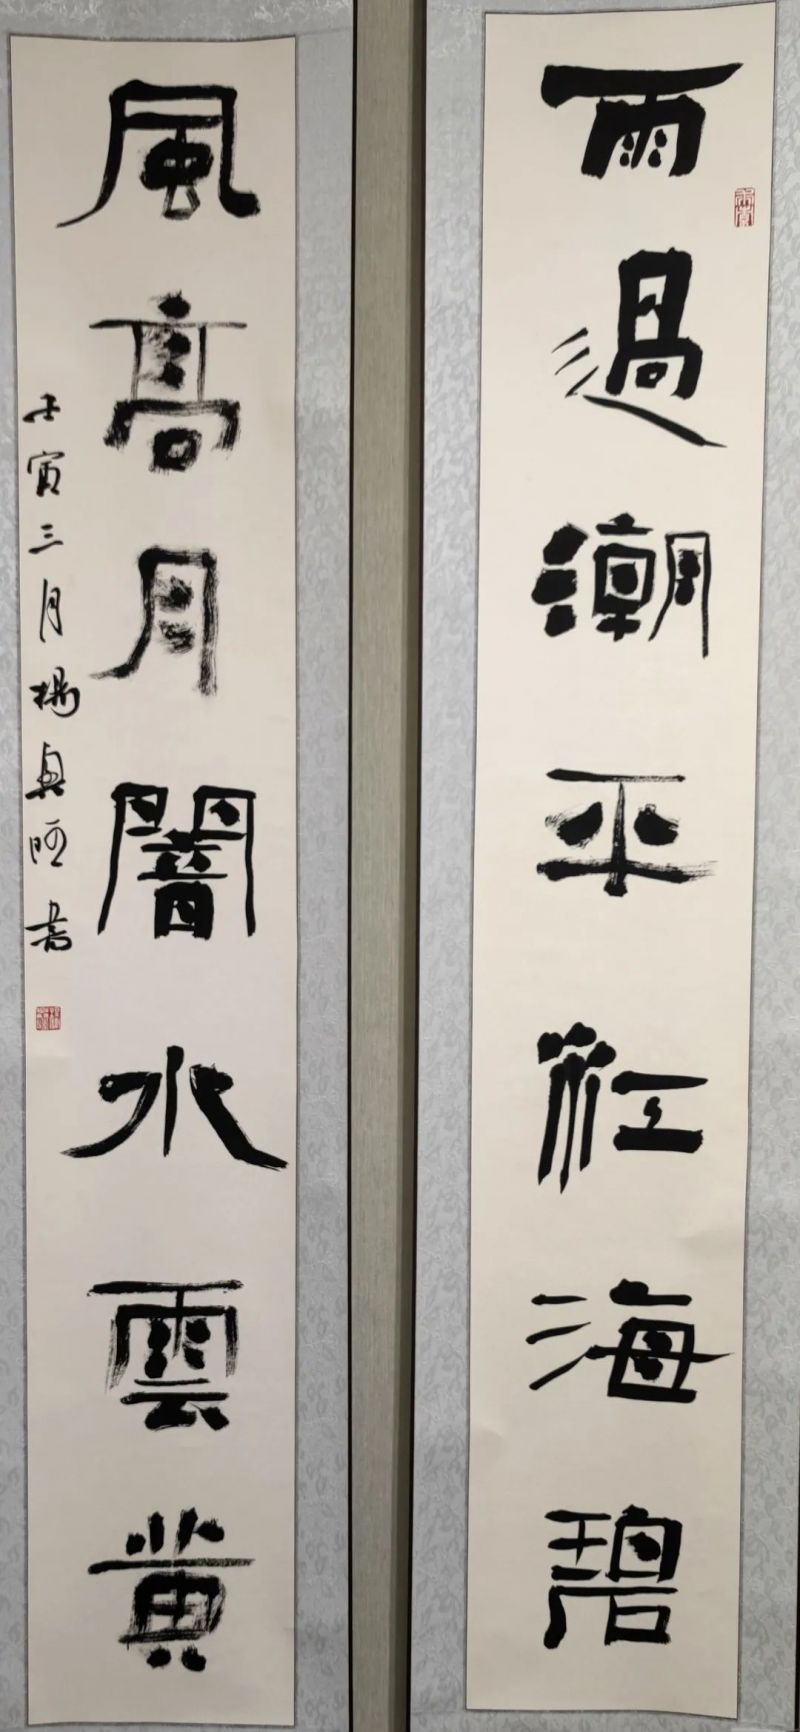 雨過潮平江海碧
風高月闇水雲黄
壬寅三月楊書